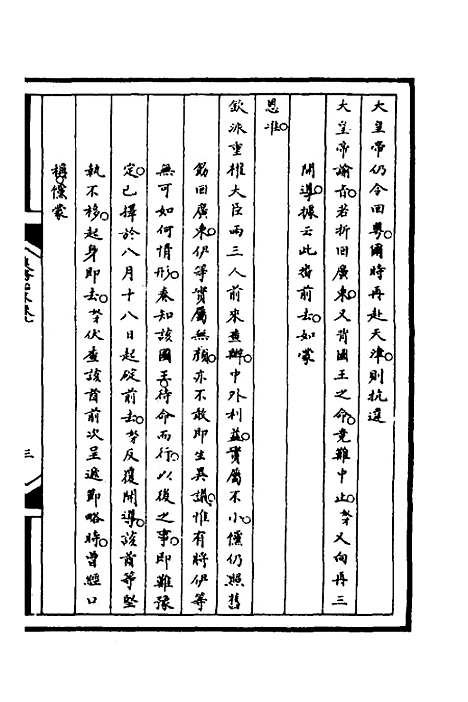 大皇帝仍令回粵。爾時再赴天津。則抗違
大皇帝諭旨。若折回廣東。又背國王之命。竟難中止。等又向再三
開導。據云此番前去。如蒙
恩准。
欽派重權大臣兩三人前來查辦。中外利益。實屬不小。儻仍照舊
飭回廣東。伊等實屬無顏。亦不敢即生異議。惟有將伊等
無可如何情形。奏知該國王。待命而行。以後之事。即難豫
定。已擇於八月十八日起碇前去。等反覆開導。該酋等堅
執不移。起身即去。等伏查該酋前次呈遞節略時。曾經口
稱。儻蒙
三